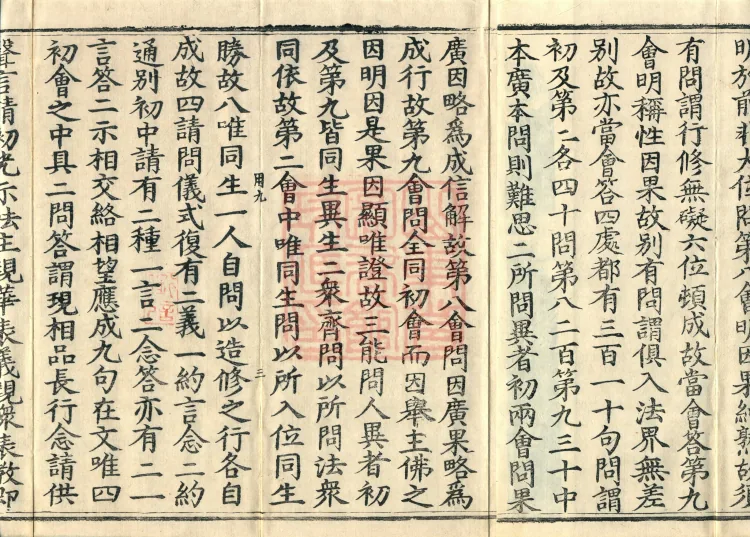 明於前
有問謂行修無礙六位頓成故當會答第九
會明稱性因果故別有問謂俱入法界無差
別故亦當會答四處都有三百一十句問謂
初及第二各四十問第八二百第九三十中
本廣本問則難思二所問異者初兩會問果
廣因略為成信解故第八會問因廣果略為
成行故第九會問全同初會而因舉主佛之
因明因是果因顯唯證故三能問人異者初
及第九皆同生異生二衆齊問以所問法衆
同依故第二會中唯同生問以所入位同生
用九
三
勝故八唯同生一人自問以造修之行各自
成故四請問儀式復有二義一約言念二約
通別初中請有二種一言二念答亦有二一
言答二示相交絡相望應成九句在文唯四
初會之中具二問答謂現相品長行念請供
聲言請